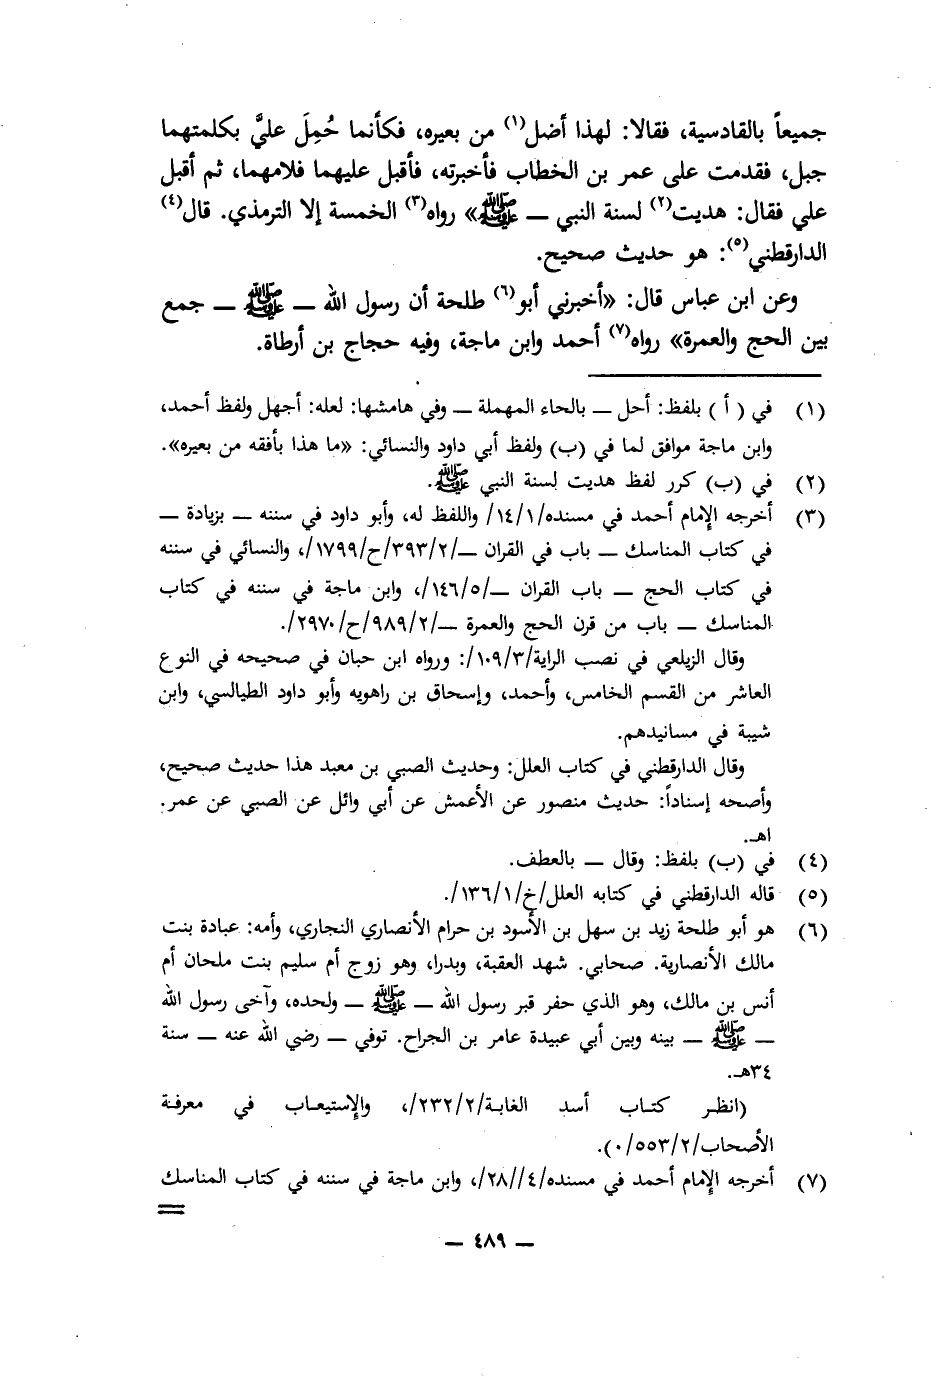 جميعاً بالقادسية، فقالا: لهذا أضل(١) من بعيره، فكأنما حُمِلَ عليَّ بكلمتهما
جبل، فقدمت على عمر بن الخطاب فأخبرته، فأقبل عليهما فلامهما، ثم أقبل
علي فقال: هديت(٢) لسنة النبي ــ ﷺ» رواه(٣) الخمسة إلا الترمذي. قال(٤)
الدارقطني(٥): هو حديث صحيح.
وعن ابن عباس قال: «أخبرني أبو(٦) طلحة أن رسول الله ــ ﷺ ــ جمع
بين الحج والعمرة» رواه(٧) أحمد وابن ماجة، وفيه حجاج بن أرطاة.
(١) في ( أ ) بلفظ: أحل ــ بالحاء المهملة ــ وفي هامشها: لعله: أجهل ولفظ أحمد،
وابن ماجة موافق لما في (ب) ولفظ أبي داود والنسائي: «ما هذا بأفقه من بعيره».
(٢) في (ب) كرر لفظ هديت لسنة النبي ﷺ.
(٣) أخرجه الإمام أحمد في مسنده/١٤/١/ واللفظ له، وأبو داود في سننه ــ بزيادة ــ
في كتاب المناسك ــ باب في القران ــ/٣٩٣/٢/ح/١٧٩٩/، والنسائي في سننه
في كتاب الحج ــ باب القران ــ/١٤٦/٥/، وابن ماجة في سننه في كتاب
المناسك ــ باب من قرن الحج والعمرة ــ/٩٨٩/٢/ح/٢٩٧٠/.
وقال الزيلعي في نصب الراية/١٠٩/٣/: ورواه ابن حبان في صحيحه في النوع
العاشر من القسم الخامس، وأحمد، وإسحاق بن راهويه وأبو داود الطيالسي، وابن
شيبة في مسانيدهم.
وقال الدارقطني في كتاب العلل: وحديث الصبي بن معبد هذا حديث صحيح،
وأصحه إسناداً: حديث منصور عن الأعمش عن أبي وائل عن الصبي عن عمر.
اهـ.
(٤) في (ب) بلفظ: وقال ــ بالعطف.
(٥) قاله الدارقطني في كتابه العلل/خ/١٣٦/١/.
(٦) هو أبو طلحة زيد بن سهل بن الأسود بن حرام الأنصاري النجاري، وأمه: عبادة بنت
مالك الأنصارية. صحابي. شهد العقبة، وبدرا، وهو زوج أم سليم بنت ملحان أم
أنس بن مالك، وهو الذي حفر قبر رسول الله ــ ﷺ ــ ولحده، وآخى رسول الله
ــ ﷺ ــ بينه وبين أبي عبيدة عامر بن الجراح. توفي ــ رضي الله عنه ــ سنة
٣٤هـ.
(انظر كتاب أسد الغابة/٢٣٢/٢/، والإستيعاب في معرفة
الأصحاب/٥٥٣/٢/٠).
(٧) أخرجه الإمام أحمد في مسنده/٢٨//٤/، وابن ماجة في سننه في كتاب المناسك
=
ــ ٤٨٩ ــ